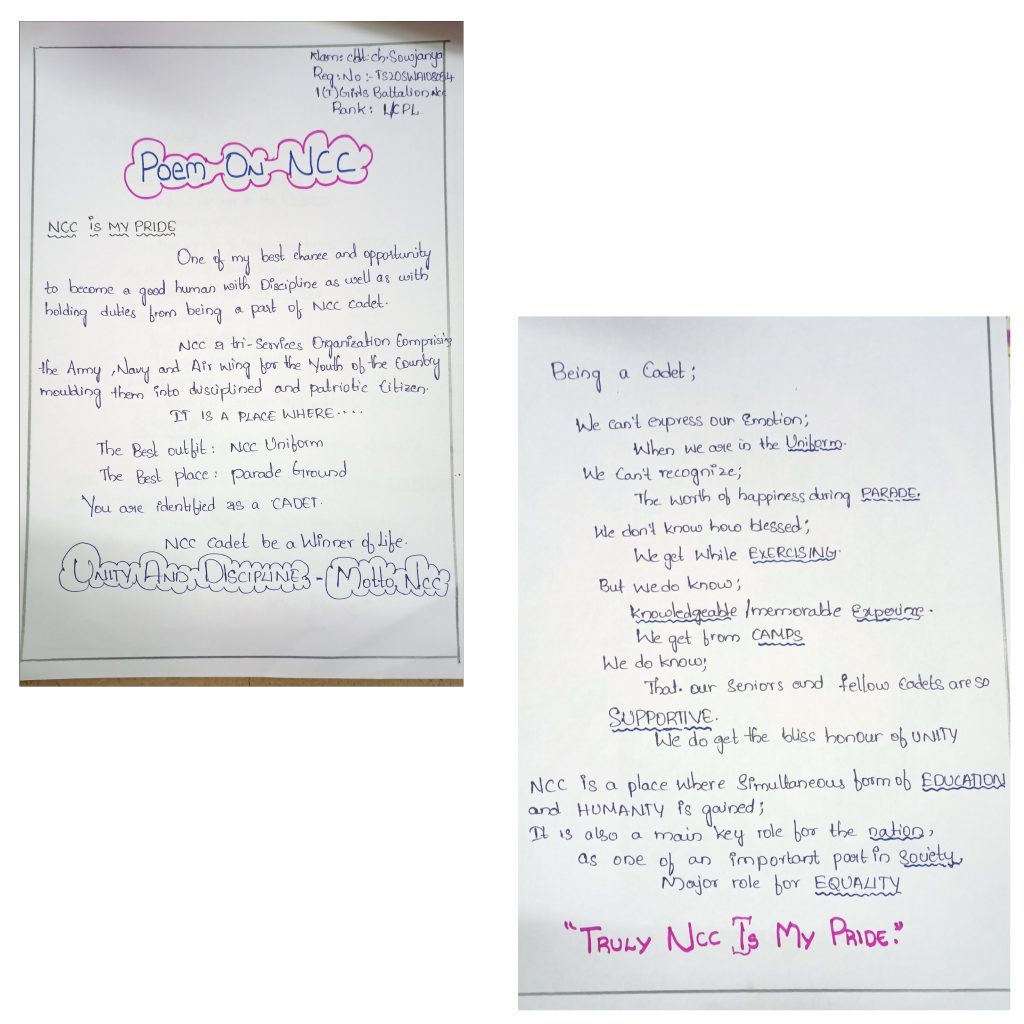 Nam: cdt: ch. Sowjanya
Reg: No :- TS20SWA108084
1 (T) Girls Battalion NCC
Rank: L/CPL
POEM ON NCC
NCC is MY PRIDE
One of my best chance and opportunity
to become a good human with Discipline as well as with
holding duties from being a part of NCC cadet.
NCC a tri-Services Organization Comprising
the Army, Navy and Air wing for the Youth of the Country
moulding them into disciplined and patriotic Citizen.
IT IS A PLACE WHERE....
The Best outfit: NCC Uniform
The Best place: parade Ground
You are identified as a CADET.
NCC cadet be a Winner of Life.
UNITY AND DISCIPLINE - Motto NCC
Being a Cadet;
We can't express our Emotion;
When we are in the Uniform.
We Can't recognize;
The worth of happiness during PARADE.
We don't know how blessed;
We get While EXERCISING.
But we do know;
knowledgeable /memorable
We get from CAMPS
We do know;
That. our Seniors and fellow Cadets are so
SUPPORTIVE.
We do get the bliss honour of UNITY
NCC is a place where Simultaneous form of EDUCATION
and HUMANTY is gained;
It is also a main key role for the nation,
as one of an important part in Society
Major role for EQUALITY
"TRULY NCC Is MY PRIDE."